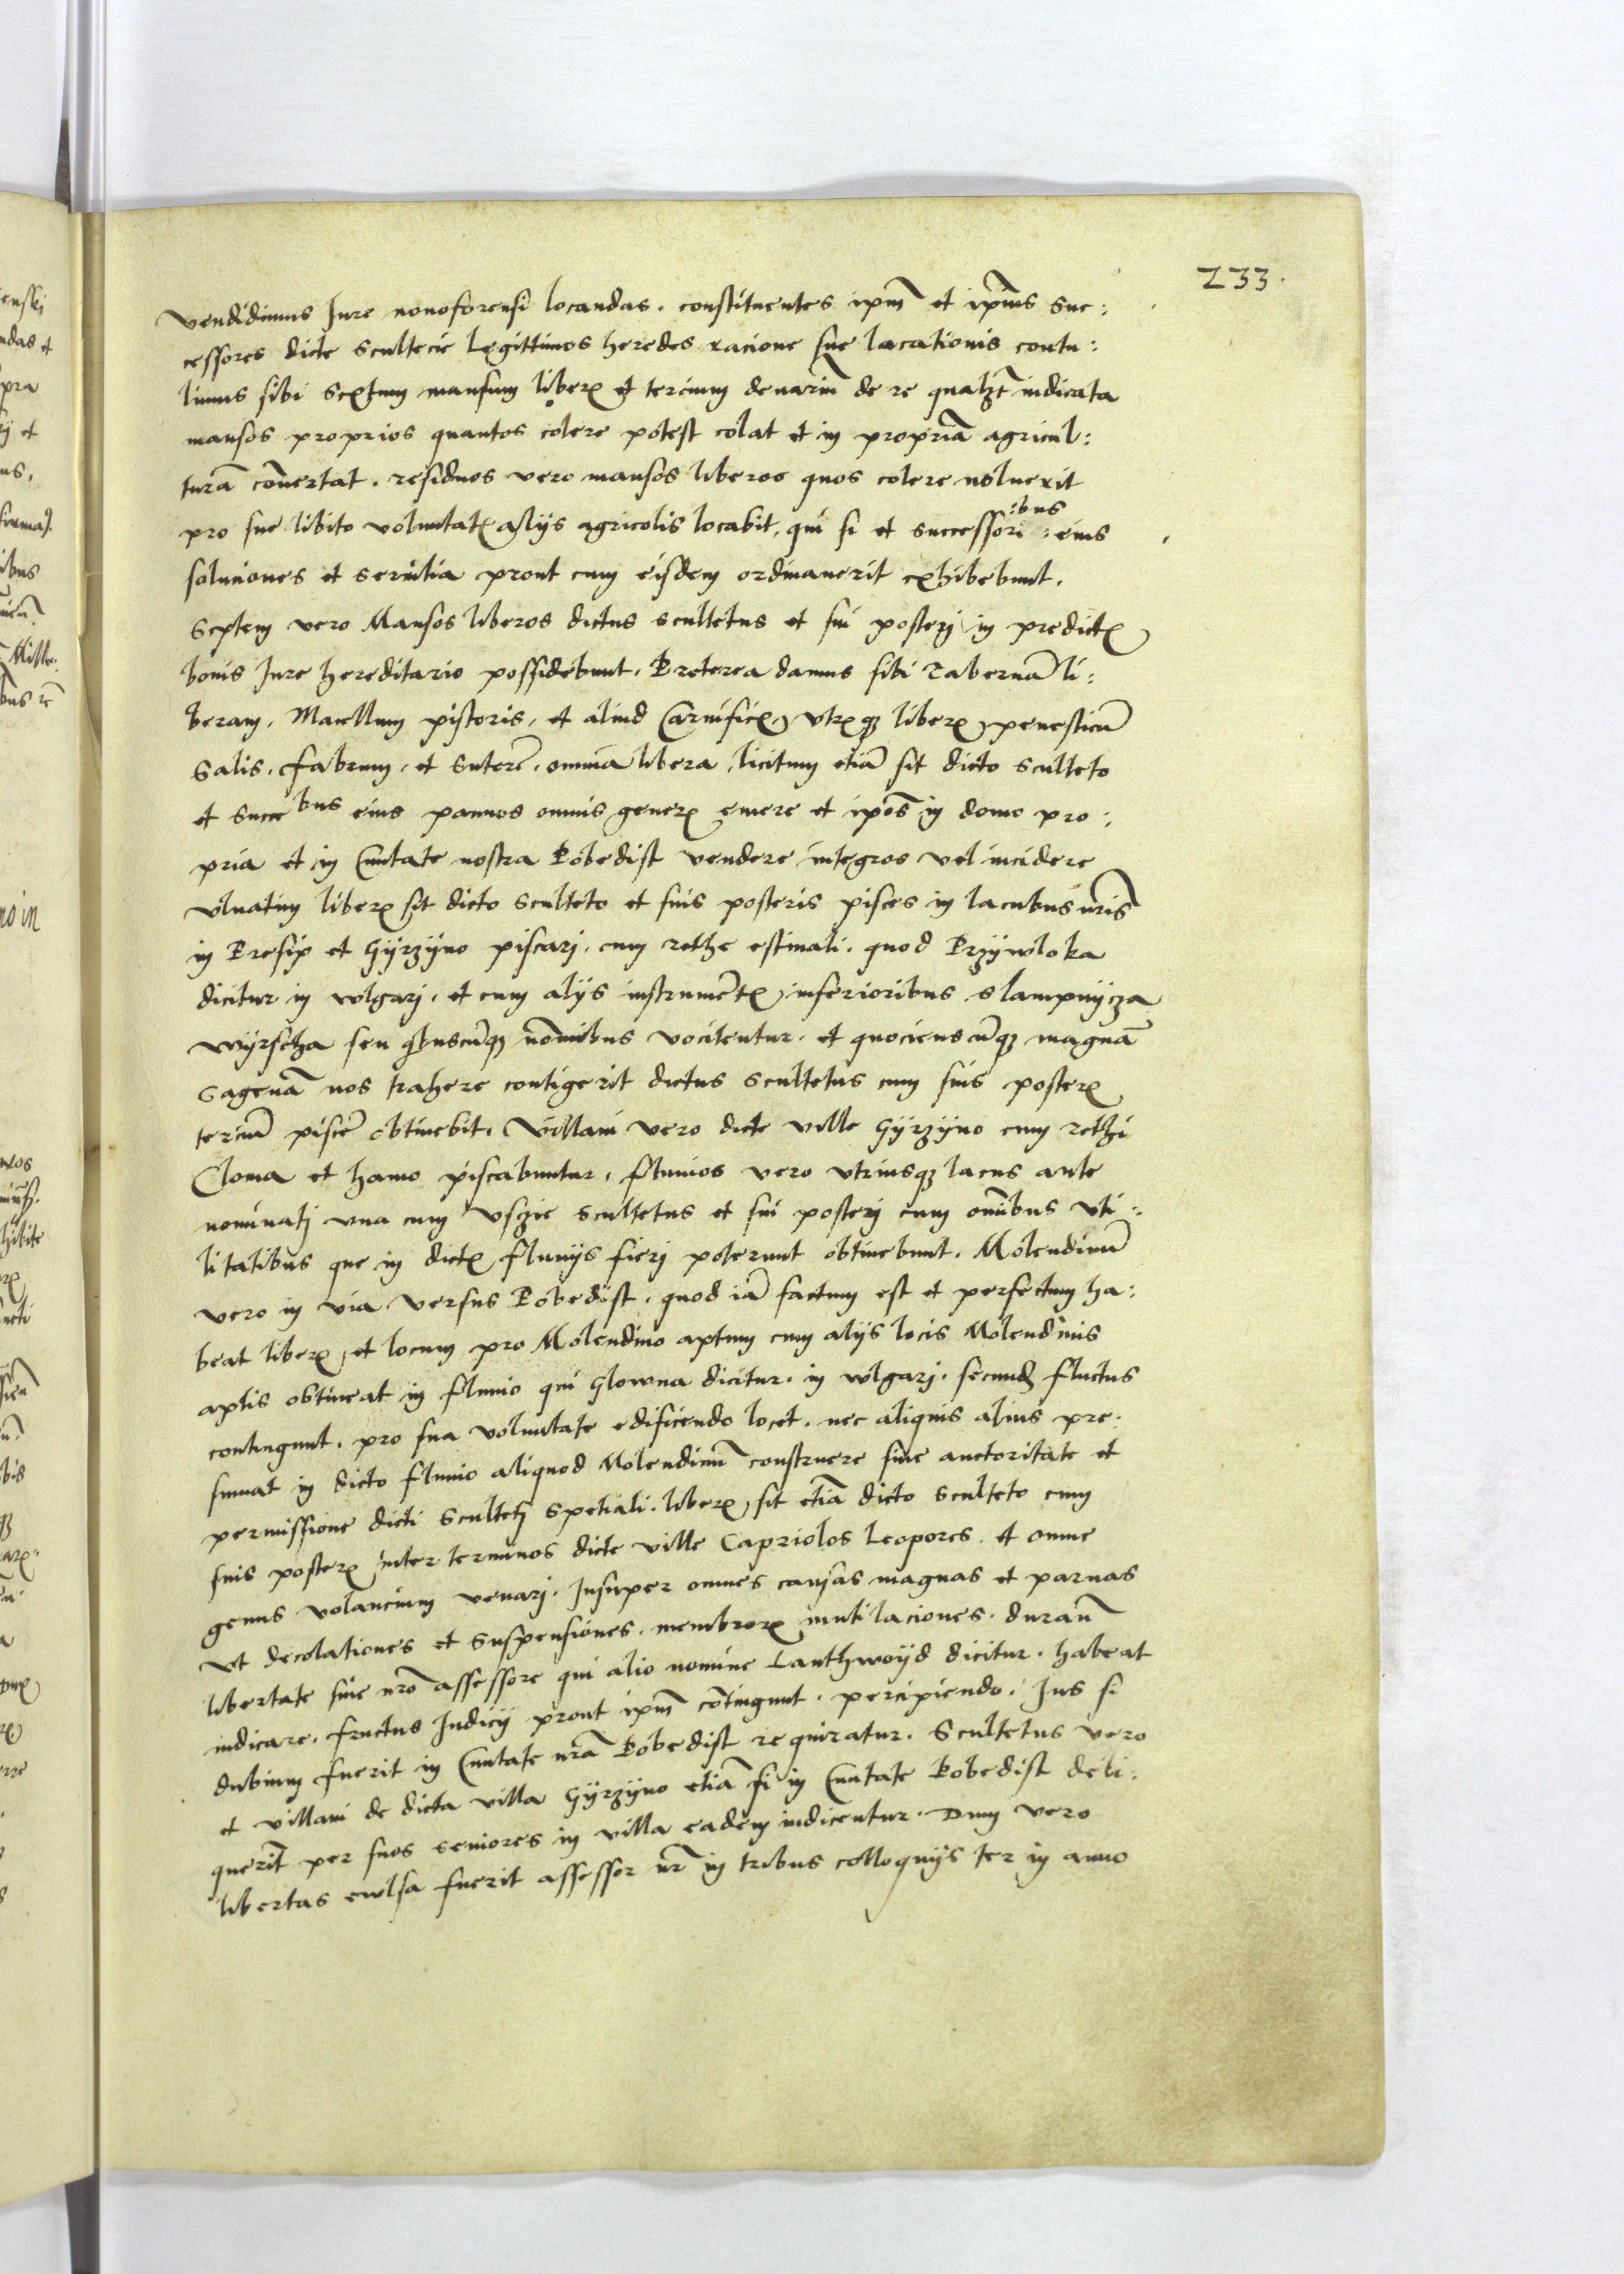 233.
vendidimus Jure nouoforensi locandas. constituentes ipm̄ et ipius suc:
cessores dicte scultecie legittimos heredes racione sue lacationis contu:
limus sibi Sextum mansum liberꝝ et tercium denariū de re qualꝫt iudicata
mansos proprios quantos colere potest colat et in propriā agricul:
turā cōuertat. residuos vero mansos liberos quos colere noluerit
pro sue libito voluntatꝭ alijs agricolis locabit, qui si et successori :bus : eius
soluciones et seruitia prout cum eisdem ordinauerit exhibebunt.
Septem vero Mansos liberos dictus scultetus et sui posterj in predictꝭ
bonis Jure hereditario possidebunt. Preterea damus sibi Tabernā li:
beram, Macellum pistoris, et aliud Carnificꝭ, vtrꝭqꝫ liberꝝ, penesticū
Salis, fabrum, et Sutorē, omnia libera, licitum etiā sit dicto sculteto
et succebus eius pannos omnis generꝭ emere et ipōs in domo pro:
pria et in Ciuitate nostra Pobedist vendere integros vel incidere
vlnatim liberꝝ sit dicto sculteto et suis posteris pisces in lacubus nr̄is
in Presip et Gÿrzÿno piscarj. cum rethe estiuali. quod Przÿwloka
dicitur in wlgarj. et cum alijs instrumētꝭ, inferioribus slampnijcza
wÿrscha seu qbuscūqꝫ nōminibus vocitentur. et quocienscūqꝫ magnā
Sagenā nos trahere contigerit dictus scultetus cum suis posterꝭ
terciū piscē obtinebit. Villani vero dicte ville Gÿrzÿno cum rethi
Cloma et hamo piscabuntur. Fluuios vero vtriusqꝫ lacus ante
nominatj vna cum vsczie scultetus et sui posterj cum omībus vti:
litatibus que in dictꝭ fluuijs fierj poterunt obtinebunt. Molendinū
vero in via versus Pobedist. quod iā factum est et perfectum ha:
beat liberꝝ, et locum pro Molendino aptum cum alijs locis Molendinis
aptis obtineat in fluuio qui Glowna dicitur. in wlgarj. secundꝫ fluctus
contingunt. pro sua voluntate edificendo locet. nec aliquis alius pre:
sumat in dicto fluuio aliquod Molendinū construere sine auctoritate et
permissione dicti scultetj spetiali. liberꝝ, sit etiā dicto sculteto cum
suis posterꝭ inter terminos dicte ville Capriolos Leopores. et omne
genus volancium venarj. Insuper omnes causas magnas et paruas
vt decolationes et suspensiones. membrorꝝ mutilaciones. durañ
libertate sine nrō assessore qui alio nomine Lanthwoÿd dicitur. habeat
iudicare. fructus Judicij prout ipm̄ cōtingunt. percipiendo. Jus si
dubium fuerit in Ciuitate nrā Pobedist requiratur. Scultetus vero
et villani de dicta villa Gÿrzÿno etiā si in Ciuitate Pobedist deli:
querīt per suos seniores in villa eadem iudicentur. Dum vero
libertas ewlsa fuerit assessor nr̄ in tribus colloquijs ter in anno